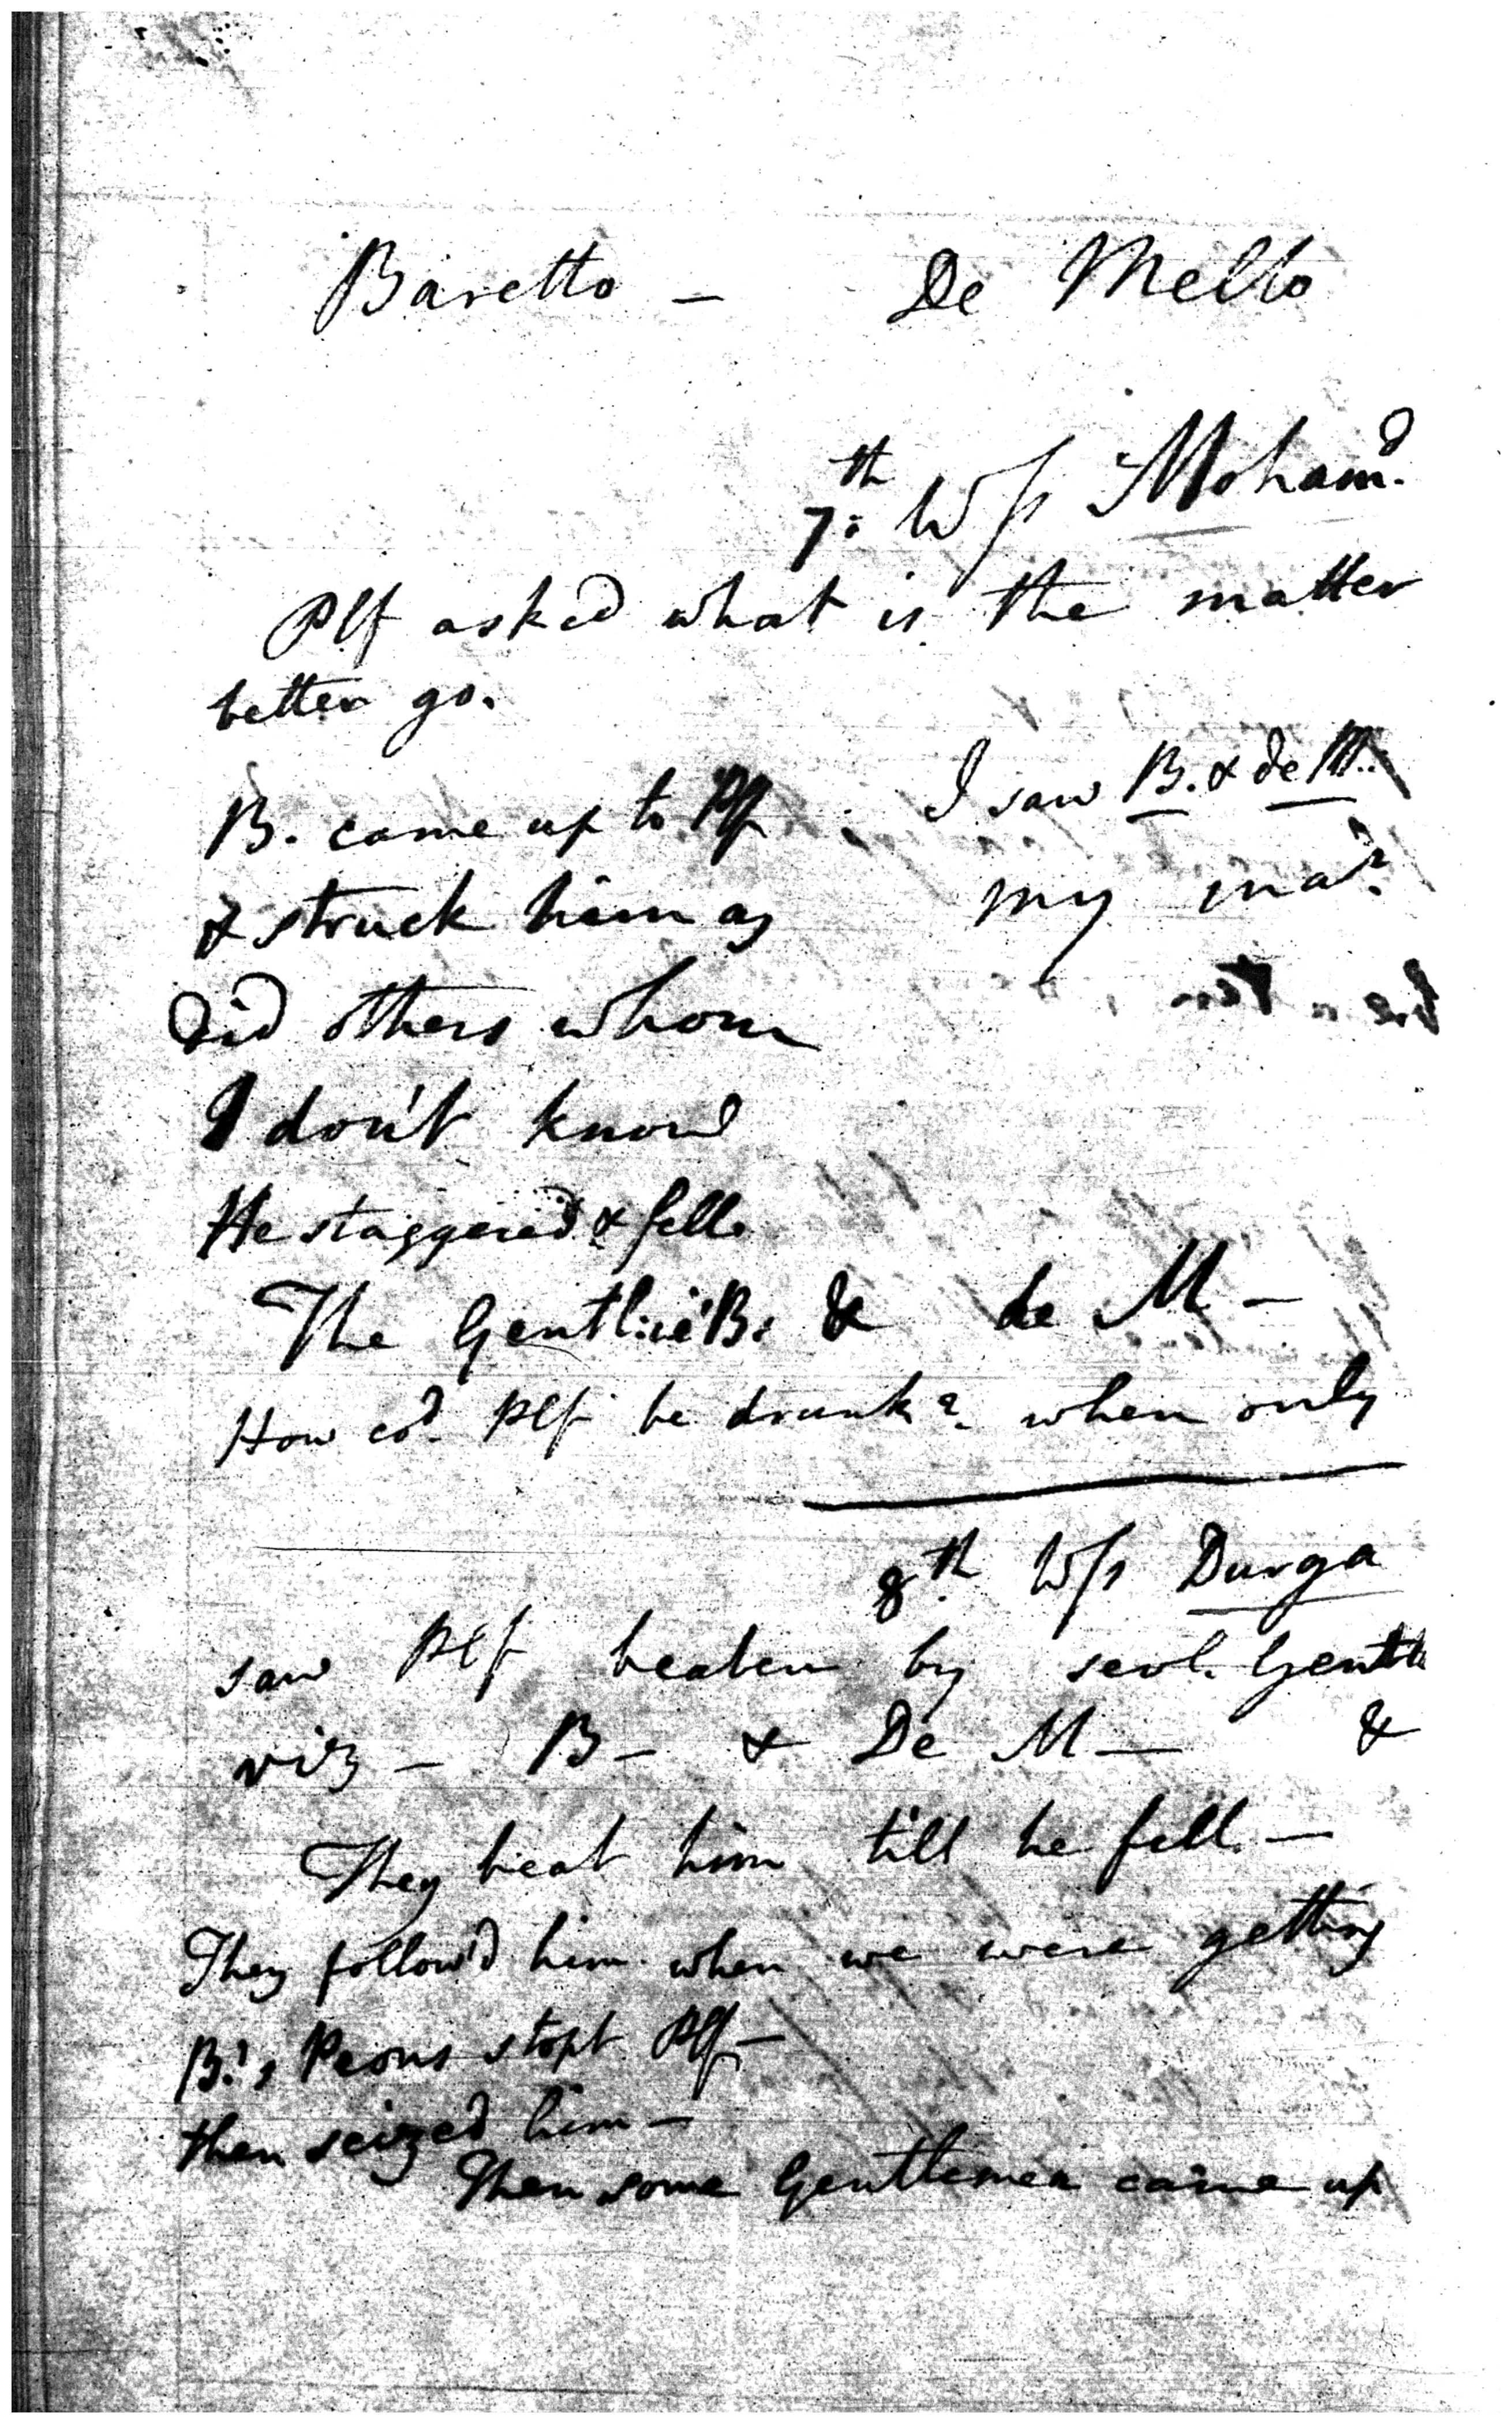 Baretto — De Mello
7th W/s Mohamd.
Plf asked what is the matter
better go.
B. came up to Plf
& struck him as
did others whom
I don't know
I saw B. & de M.
my
He staggered & fell.
The Gentl: B: & de M —
How cd. Plf be drunk? when only
8th W/s Durga
saw Plf beaten by sevl. Gentle
viz — B — & De M — &
They beat him till he fell. —
They follow'd him when we were getting
B.'s Peons stopt Plf —
then seized him —
Then some Gentlemen came up